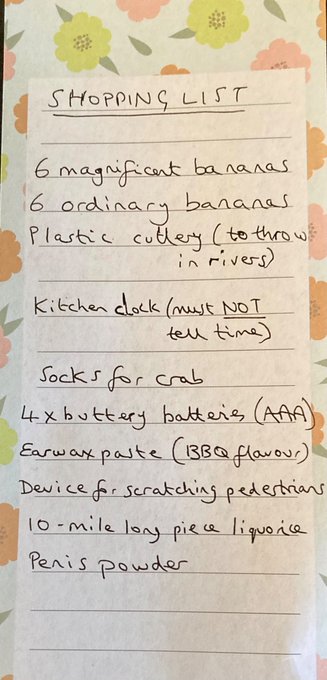 SHOPPING LIST
6 magnificent bananas
6 ordinary bananas
Plastic cutlery (to throw
in rivers)
Kitchen clock (must NOT
tell time)
Socks for crab
4 x buttery batteries (AAA)
Earwax paste (BBQ flavour)
Device for scratching pedestrians
10-mile long piece liquorice
Penis powder